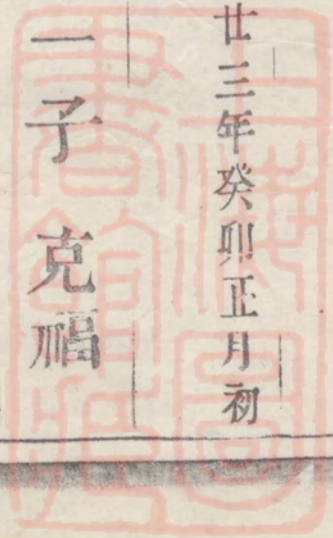 廿三年癸卯正月初
一子克福